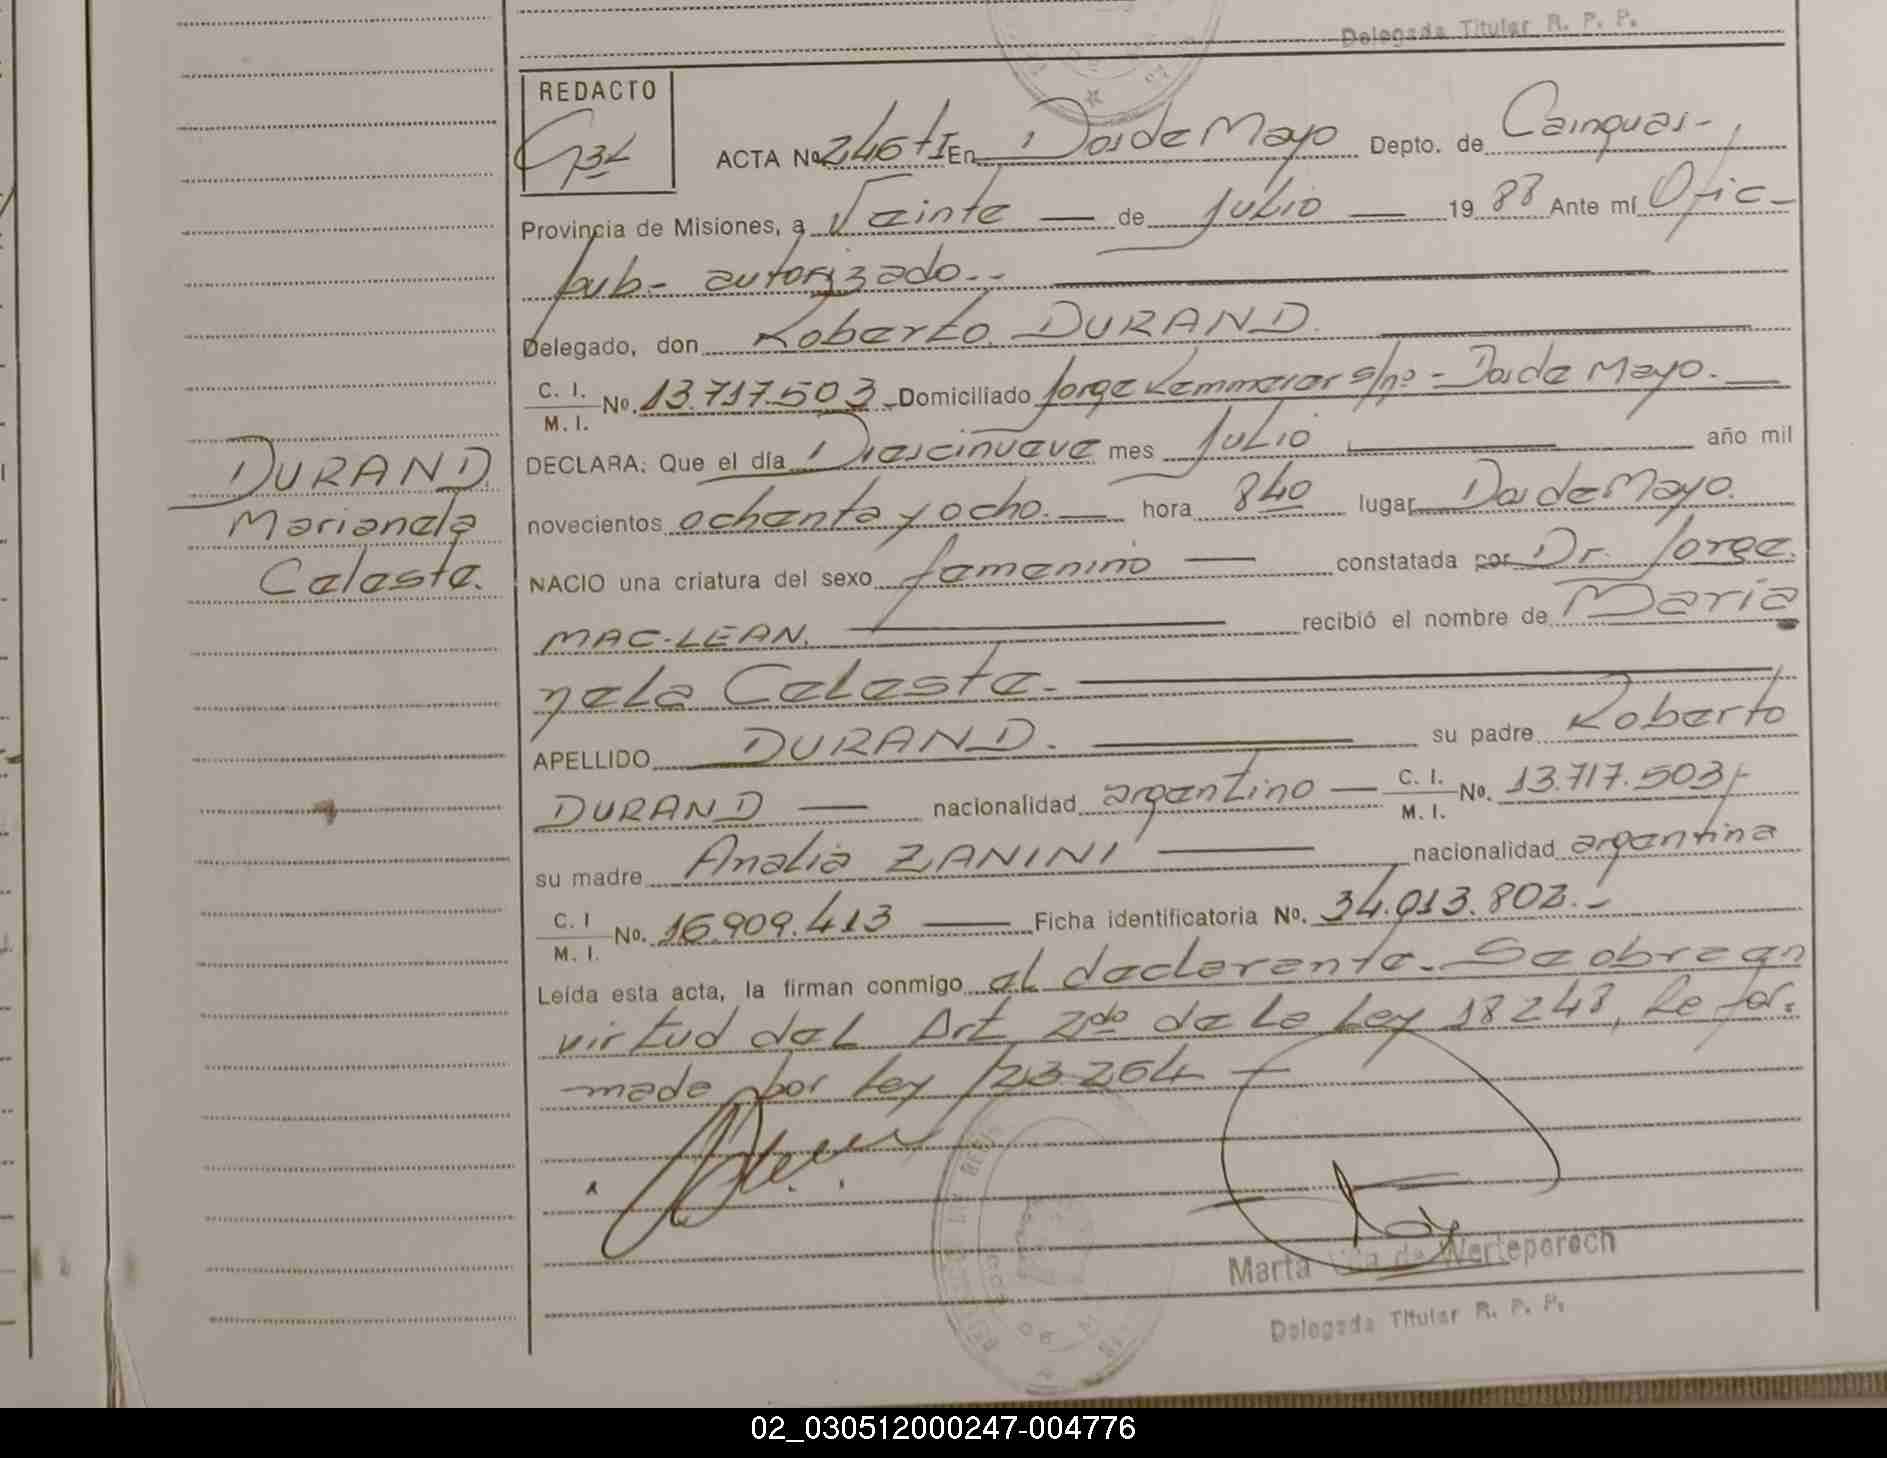 Delegada Titular R. P. P.
REDACTO
ACTA Nº 246 tI En Dos de Mayo Depto. de Cainguas-
Provincia de Misiones, a Veinte — de Julio — 19 88 Ante mí Ofic-
pub- autorizado.--
Delegado, don Roberto DURAND.
C. I.
M. I. No. 13.717.503 Domiciliado Jorge Kemmerer s/nº - Dos de Mayo.
DECLARA: Que el día Diescinueve mes Julio — año mil
novecientos ochenta y ocho. — hora 840 lugar Dos de Mayo.
NACIO una criatura del sexo femenino — constatada por Dr. Jorge
MAC-LEAN. — recibió el nombre de Maria
nela Celeste.-
APELLIDO DURAND. — su padre Roberto
DURAND — nacionalidad argentino — C. I.
M. I. No. 13.717.503/-
su madre Analia ZANINI — nacionalidad argentina
C. I
M. I. No. 16.909.413 — Ficha identificatoria No. 34.013.802.-
Leída esta acta, la firman conmigo el declarante.- Se obra en
virtud del Art 2do de la Ley 18248, Refor-
mada por Ley 23264 —
DURAND
Marianela
Celeste.
Marta de Werteporoch
Delegada Titular R. P. P.
02_030512000247-004776